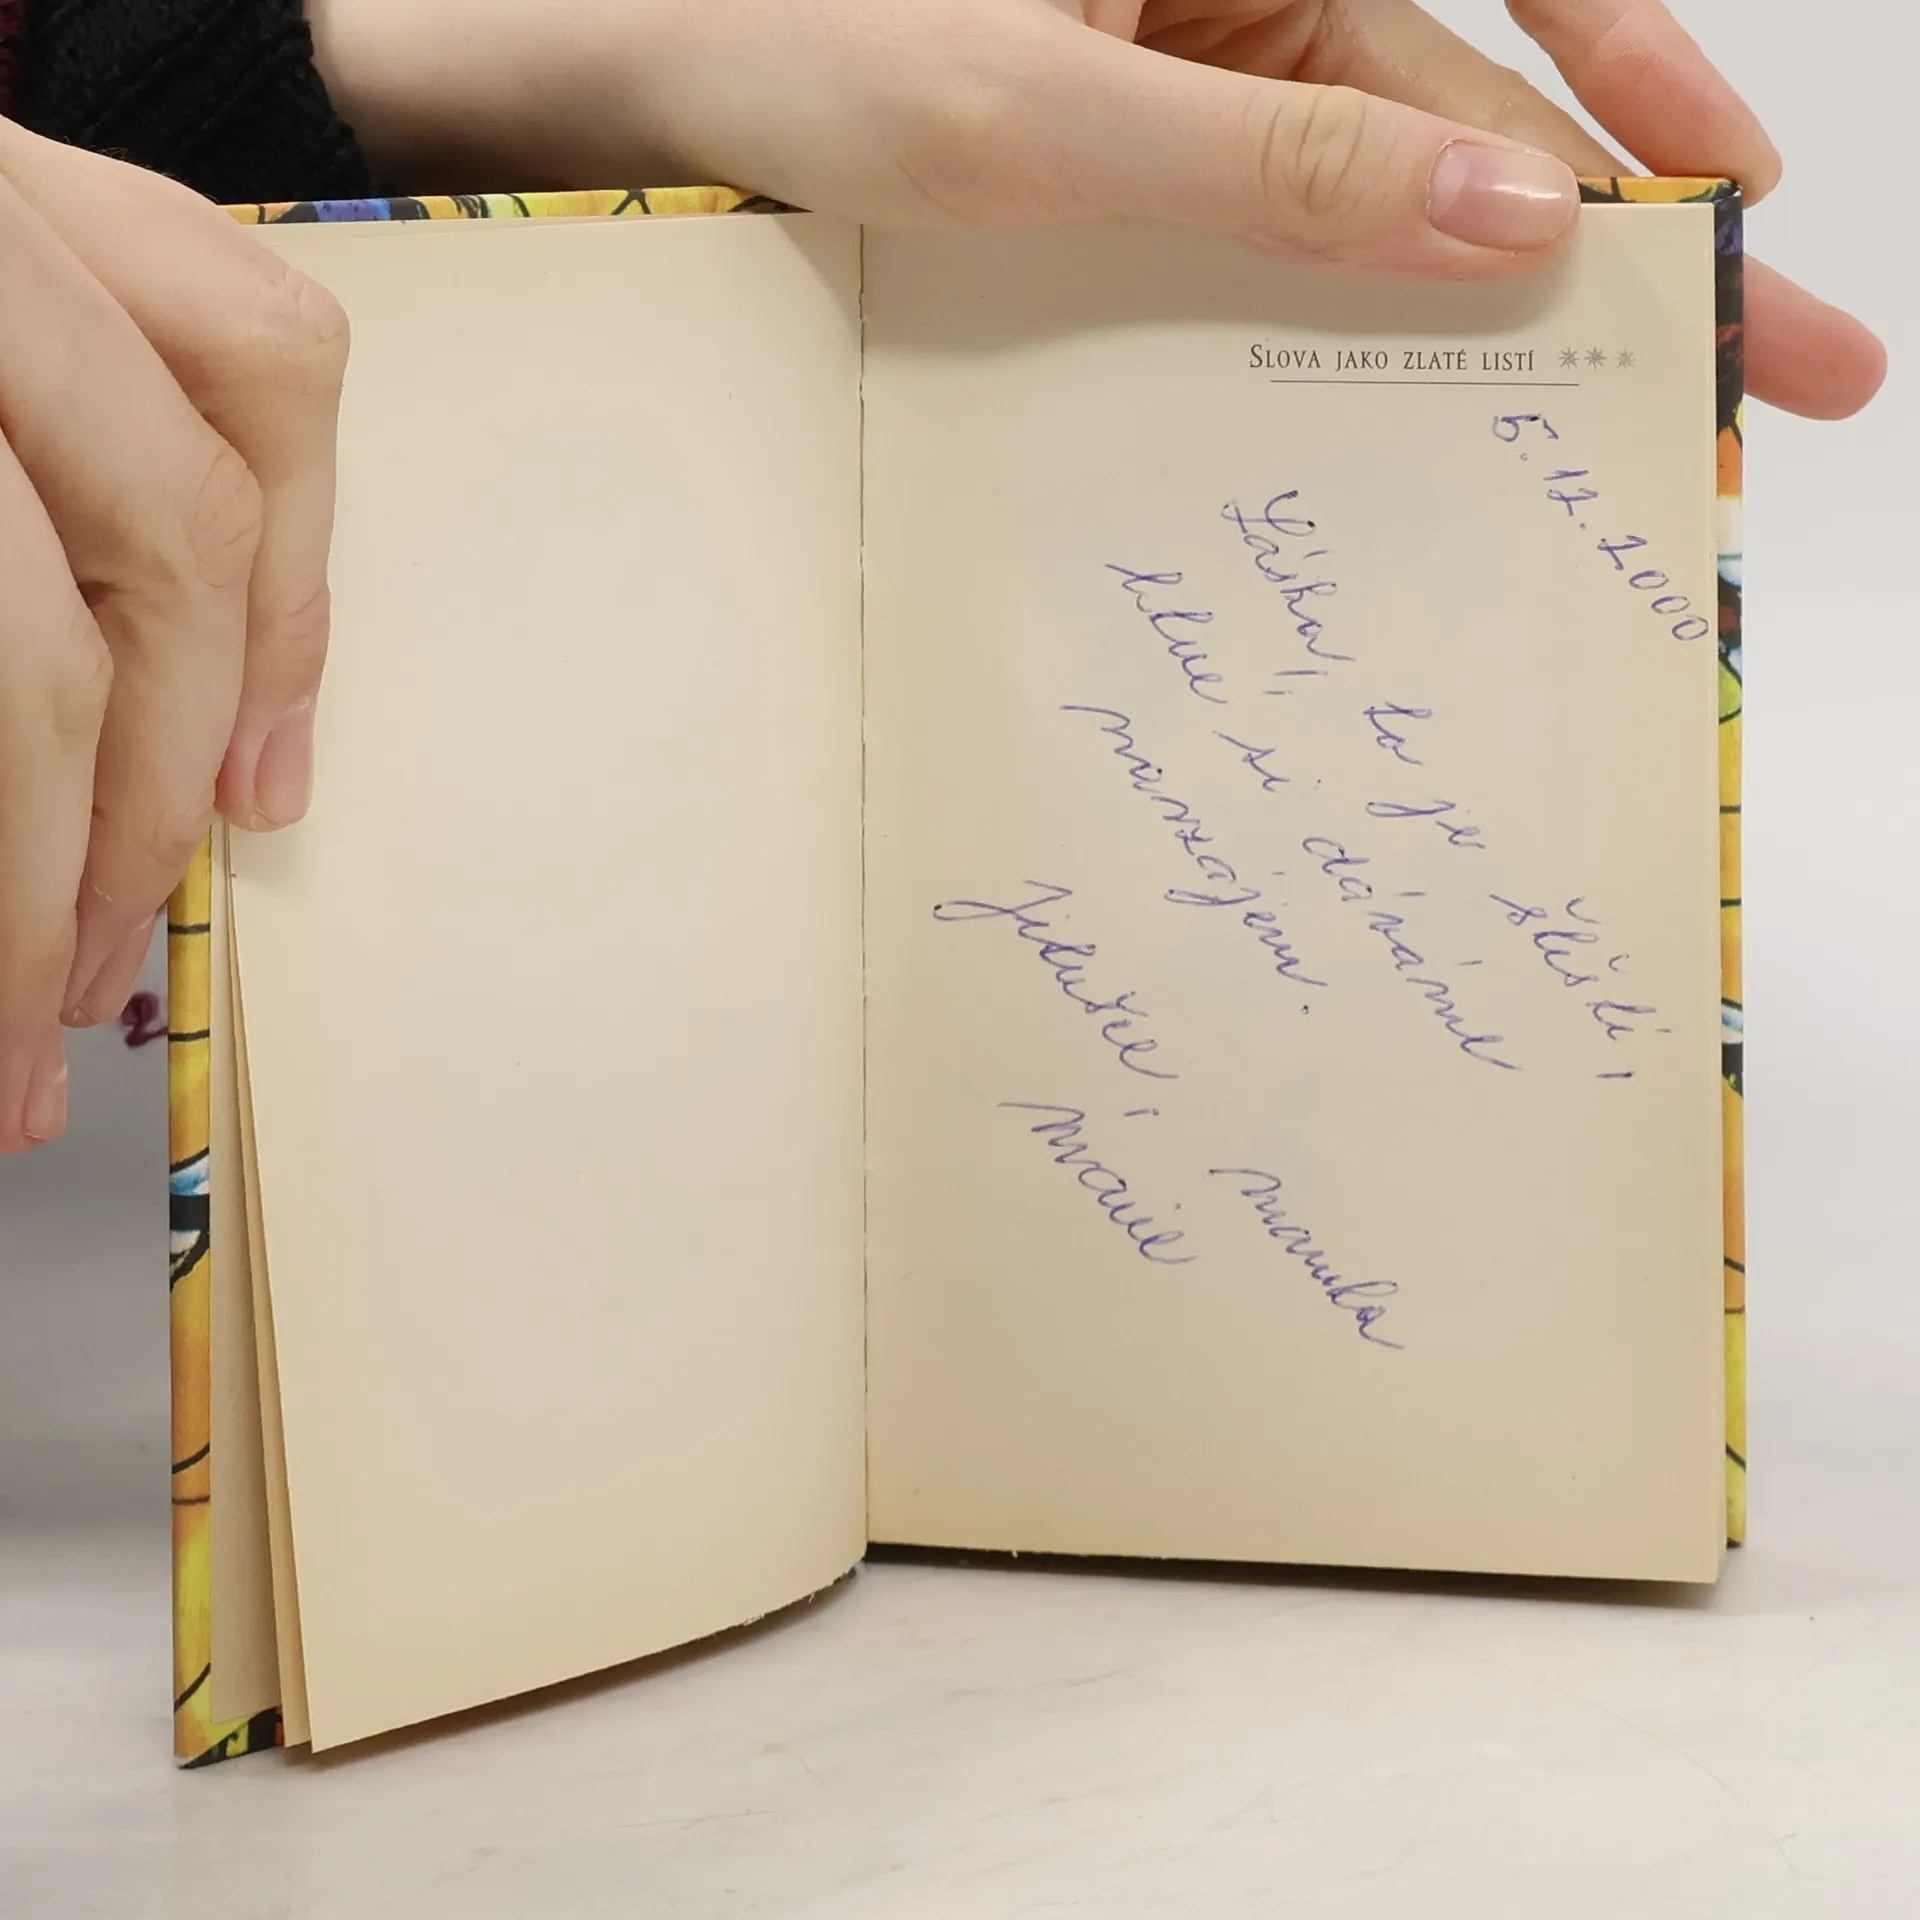 SLOVA JAKO ZLATÉ LISTÍ
5. 12. 2000
Láska, to je štěstí,
které si dáváme
navzájem.
Jitušce, mamka
Marie